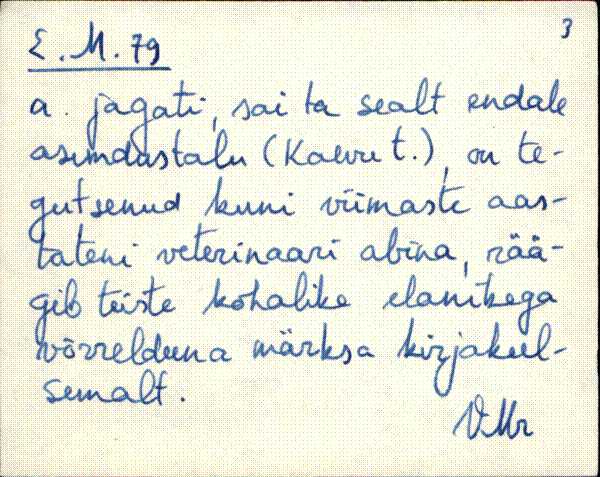 3
E.M.79
a. jagati, sai ta sealt endale
asundustalu (Kaevu t.), on te-
gutsenud kuni viimaste aas-
tateni veterinaari abina, rää-
gib teiste kohalike elanikega
võrrelduna märksa kirjakeel-
semalt.
VMr